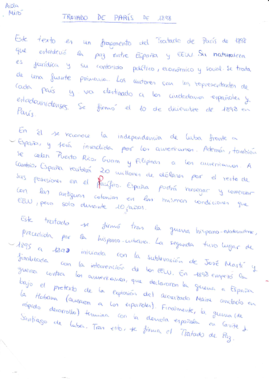 TRATADO DE PARÍS DE 1898
Este texto es un fragmento del Tratado de París de 1898
que estableció la paz entre España y EEUU. Su naturaleza
es jurídica y su contenido político, económico y social. Se trata
de una fuente primaria. Los autores son los representantes de
cada país y va destinado a los ciudadanos españoles y
estadounidenses. Se firmó el 10 de diciembre de 1898 en
París.
En él se reconoce la independencia de Cuba frente a
España, y será por los americanos. Además, también
se ceden Puerto Rico, Guam y Filipinas a los americanos. A
cambio España recibirá 20 millones de dólares por el resto de
sus posesiones en el Pacífico. España podrá y comerciar
con las antiguas colonias en las mismas condiciones que
EEUU, pero solo durante 10 años.
Este tratado se firmó tras la guerra hispano-
precedida por la hispano-cubana. La segunda tuvo lugar de
1895 a 1898 con la sublevación de José Martí y
con la intervención de los EEUU. En 1898 empezó la
guerra contra los americanos que declararon la guerra a España
bajo el pretexto de la explosión del acorazado Maine en
la Habana ( a los españoles). Finalmente, la guerra
terminó con la española en Cavite y
Santiago de Cuba. Tras esto se firmó el Tratado de París.